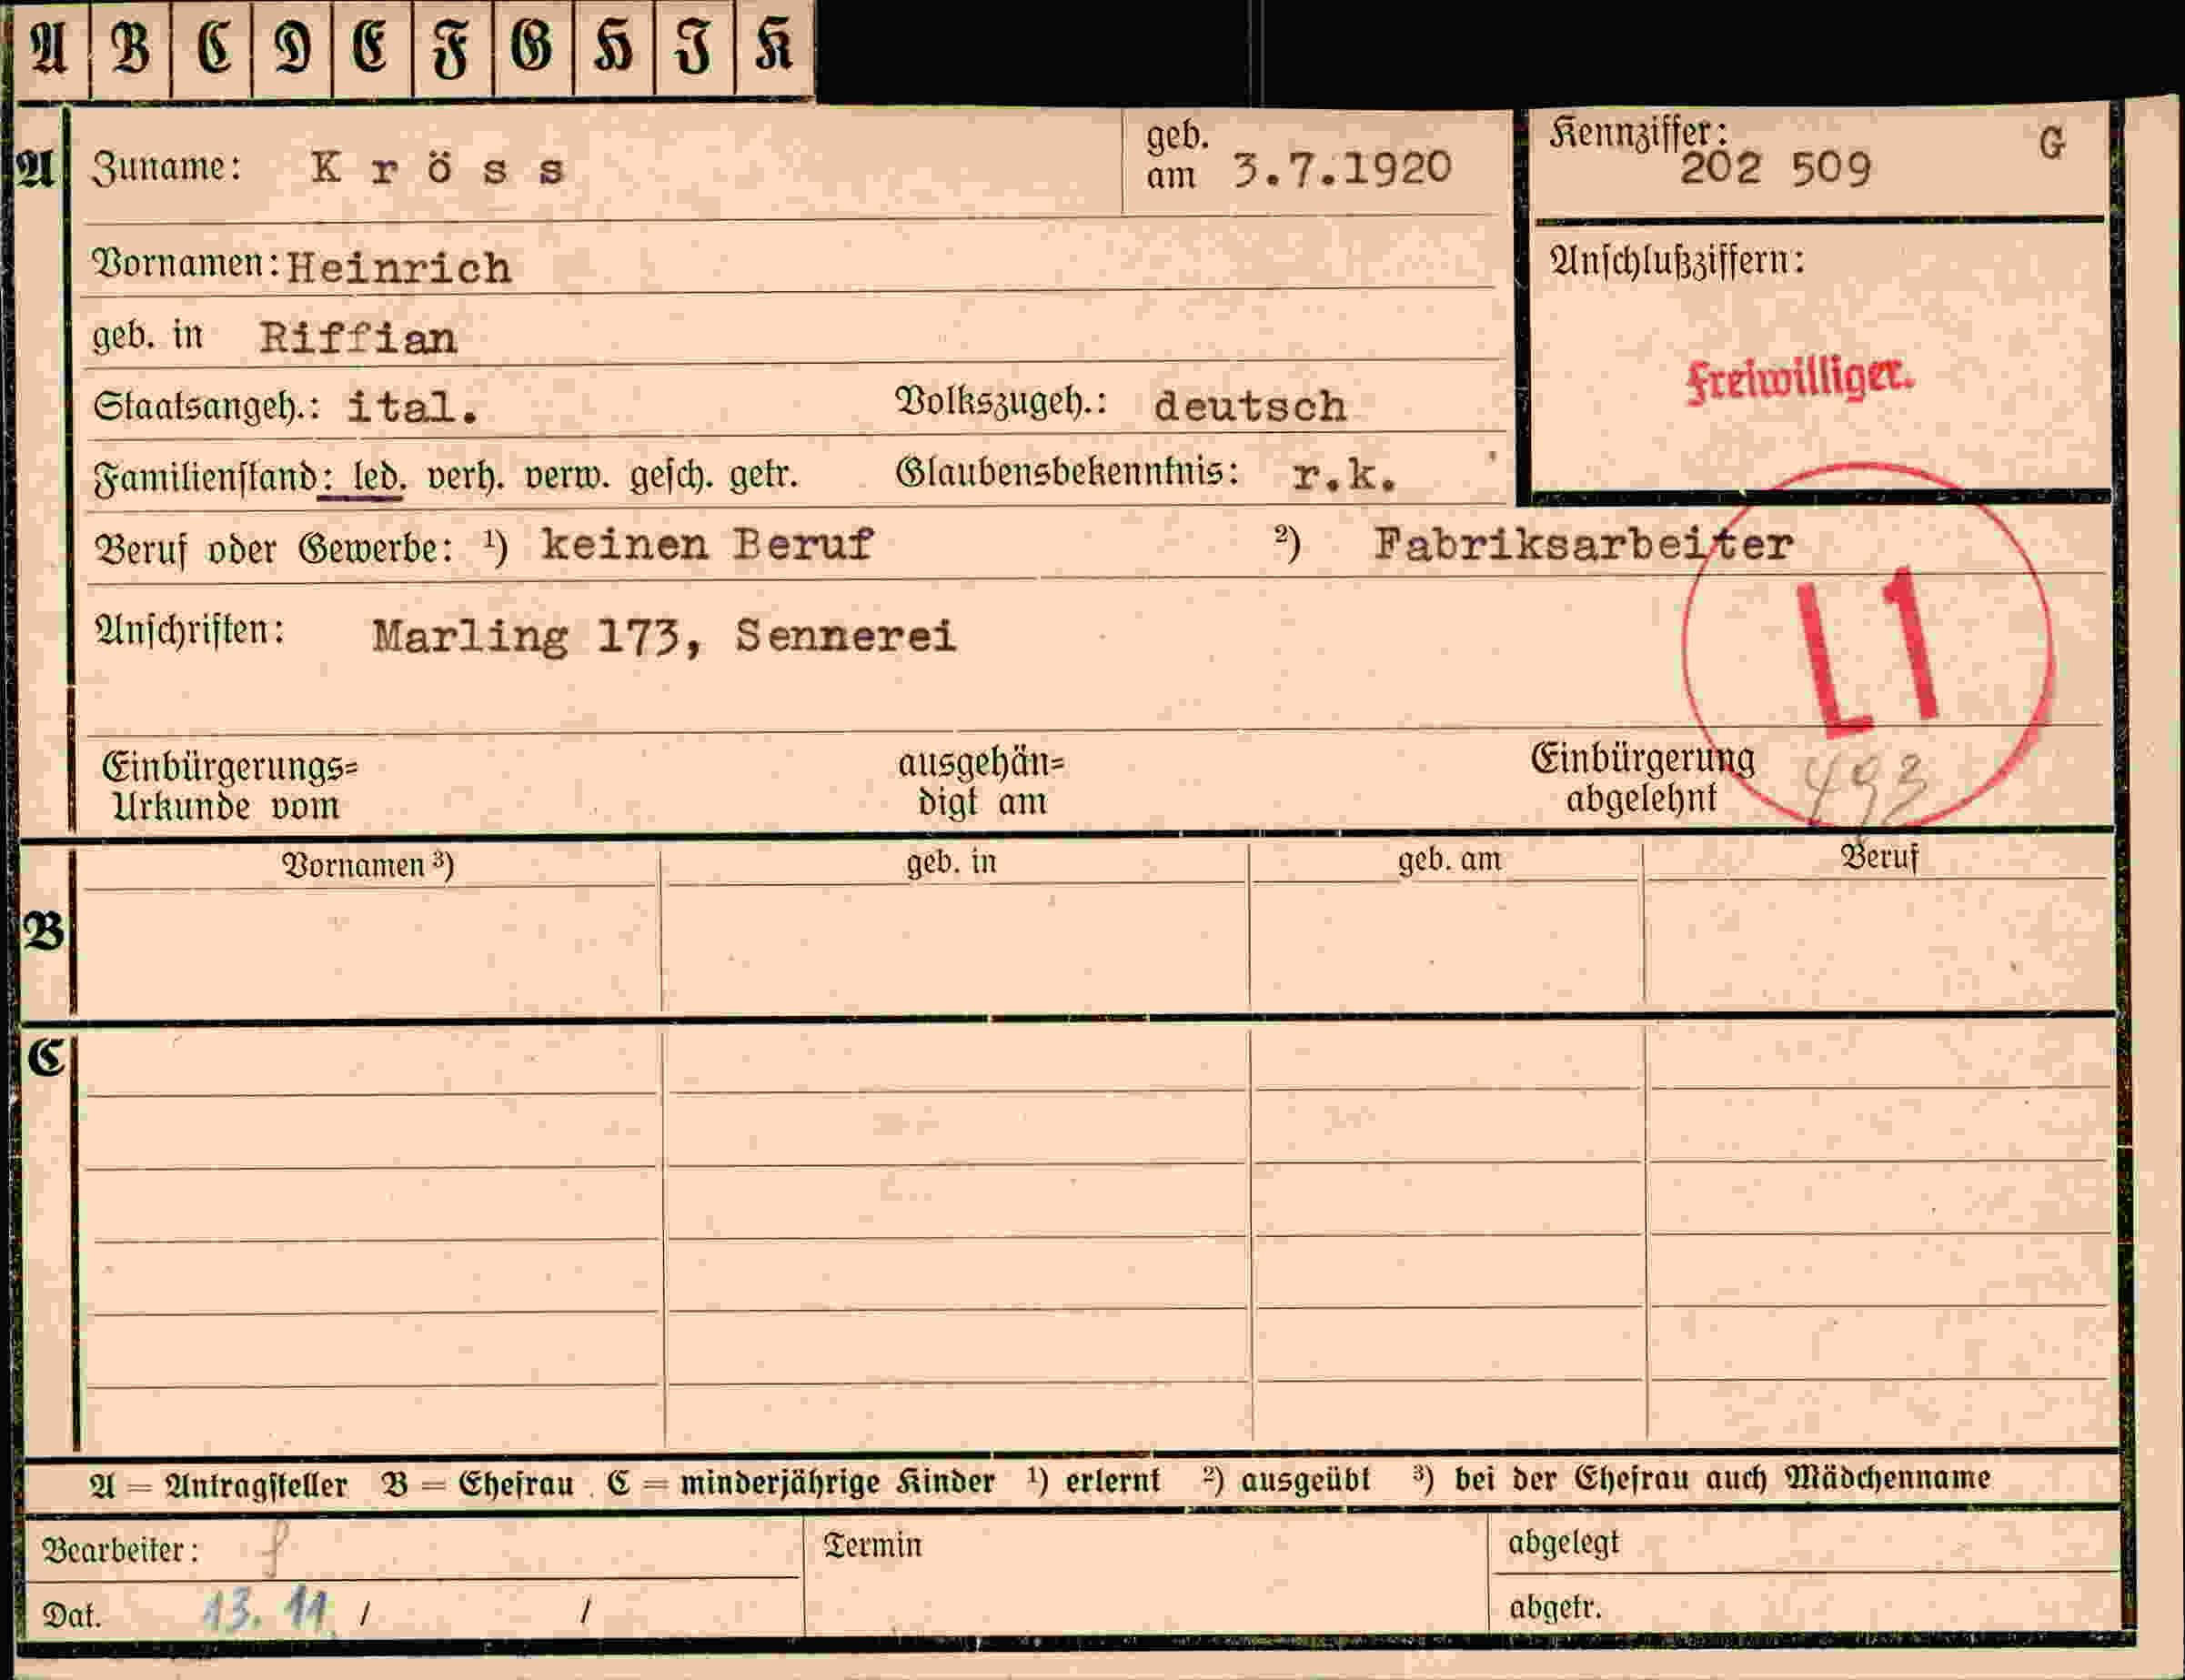 A B C D E F G H J K
A Zuname: Kröss geb. am 3.7.1920 Kennziffer: 202 509 G
Vornamen: Heinrich Anschlußziffern:
geb. in Riffian
Freiwilliger.
Staatsangeh.: ital. Volkszugeh.: deutsch
Familienstand: led. verh. verw. gesch. getr. Glaubensbekenntnis: r.k.
Beruf oder Gewerbe: ¹) keinen Beruf ²) Fabriksarbeiter
Anschriften: Marling 173, Sennerei
L1
Einbürgerungs= Urkunde vom ausgehän= digt am Einbürgerung abgelehnt 493
B Vornamen ³) geb. in geb. am Beruf
C
A = Antragsteller B = Ehefrau C = minderjährige Kinder ¹) erlernt ²) ausgeübt ³) bei der Ehefrau auch Mädchenname
Bearbeiter: Termin abgelegt
Dat. 13. 11. / / abgetr.